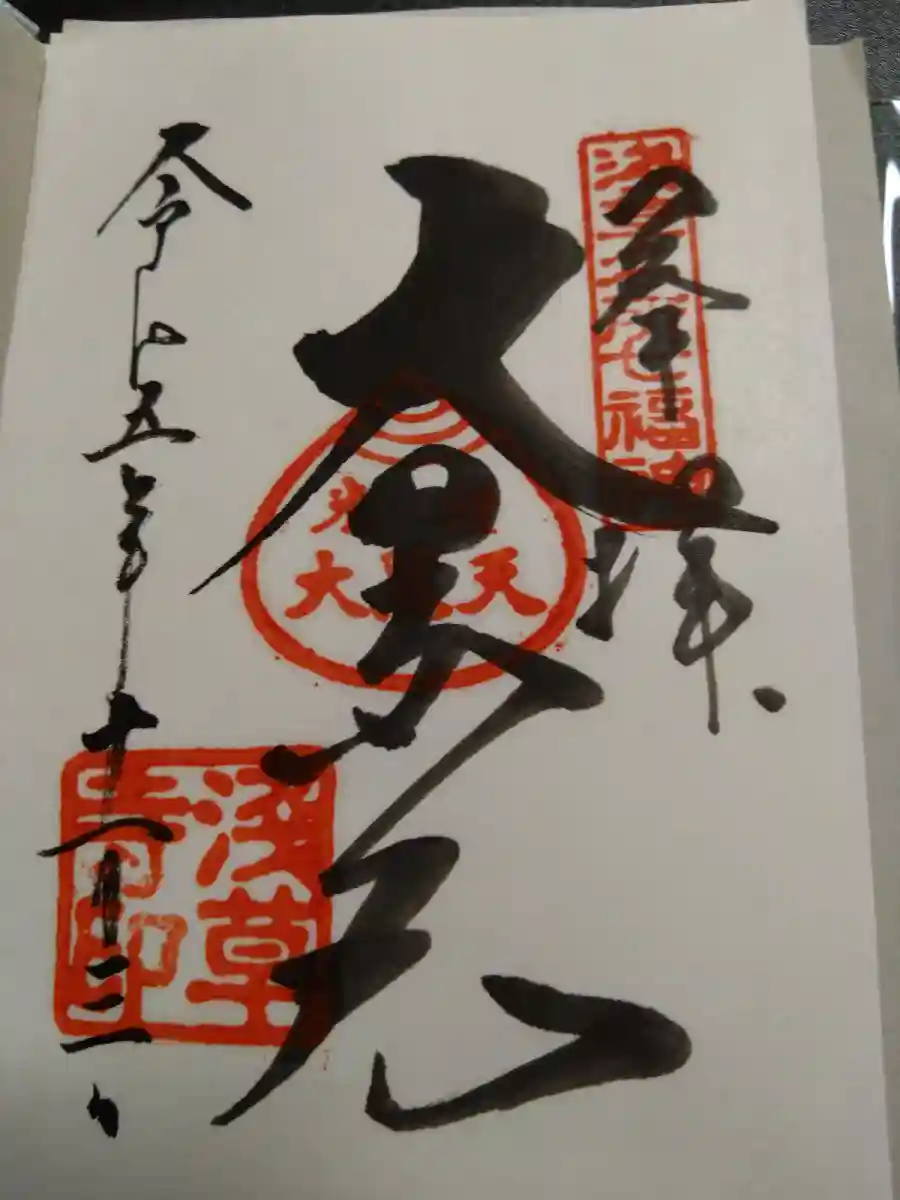 奉拝
浅草名所七福神
大黒天
大黒天
令和五年十一月三日
淺草
寺印